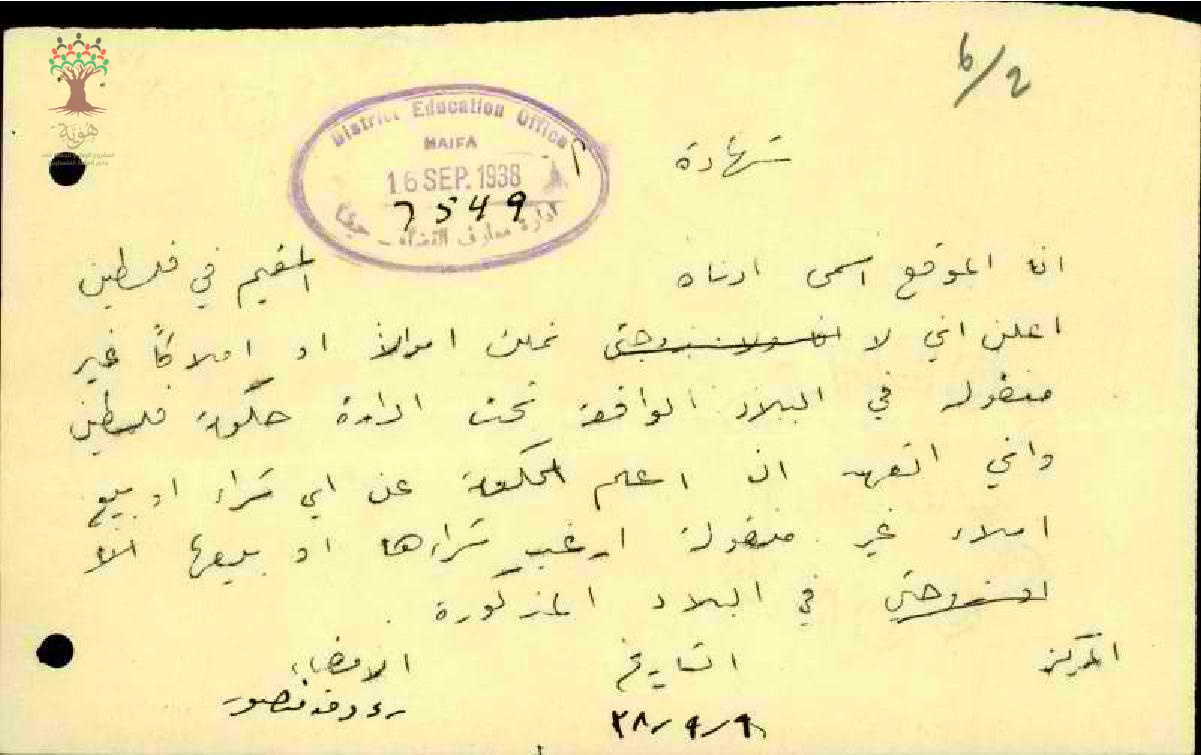 6/2
District Education Office
HAIFA
16 SEP. 1938
7549
ادارة معارف القضاء - حيفا
هوية
شهادة
انا الموقع اسمي ادناه المقيم في فلسطين
اعلن اني لا نملك اموالاً او املاكاً غير
منقولة في البلاد الواقعة تحت ادارة حكومة فلسطين
واني اتعهد ان اعلم الحكومة عن اي شراء او بيع
املاك غير منقولة ارغب شراءها او بيعها انا
او زوجتي في البلاد المذكورة .
المركز التاريخ الامضاء
رءوف منصور